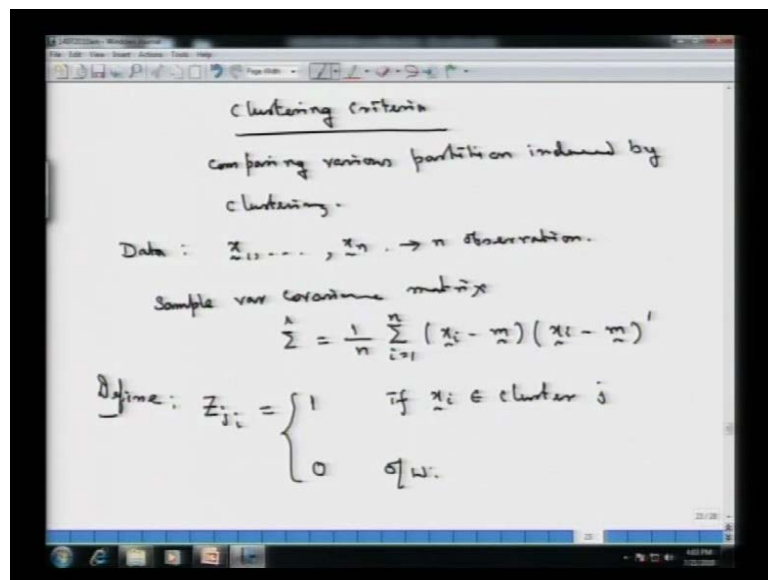 File Edit View Insert Actions Tools Help
Page Width
Clustering Criteria
comparing various partition induced by
clustering.
Data : x₁, ...., xₙ . → n observation.
Sample var covariance matrix
Σ̂ = 1/n Σᵢ₌₁ⁿ (xᵢ - m) (xᵢ - m)'
Define : Zⱼᵢ = { 1 if xᵢ ∈ cluster j
0 o/w.
23/28
23
4:03 PM